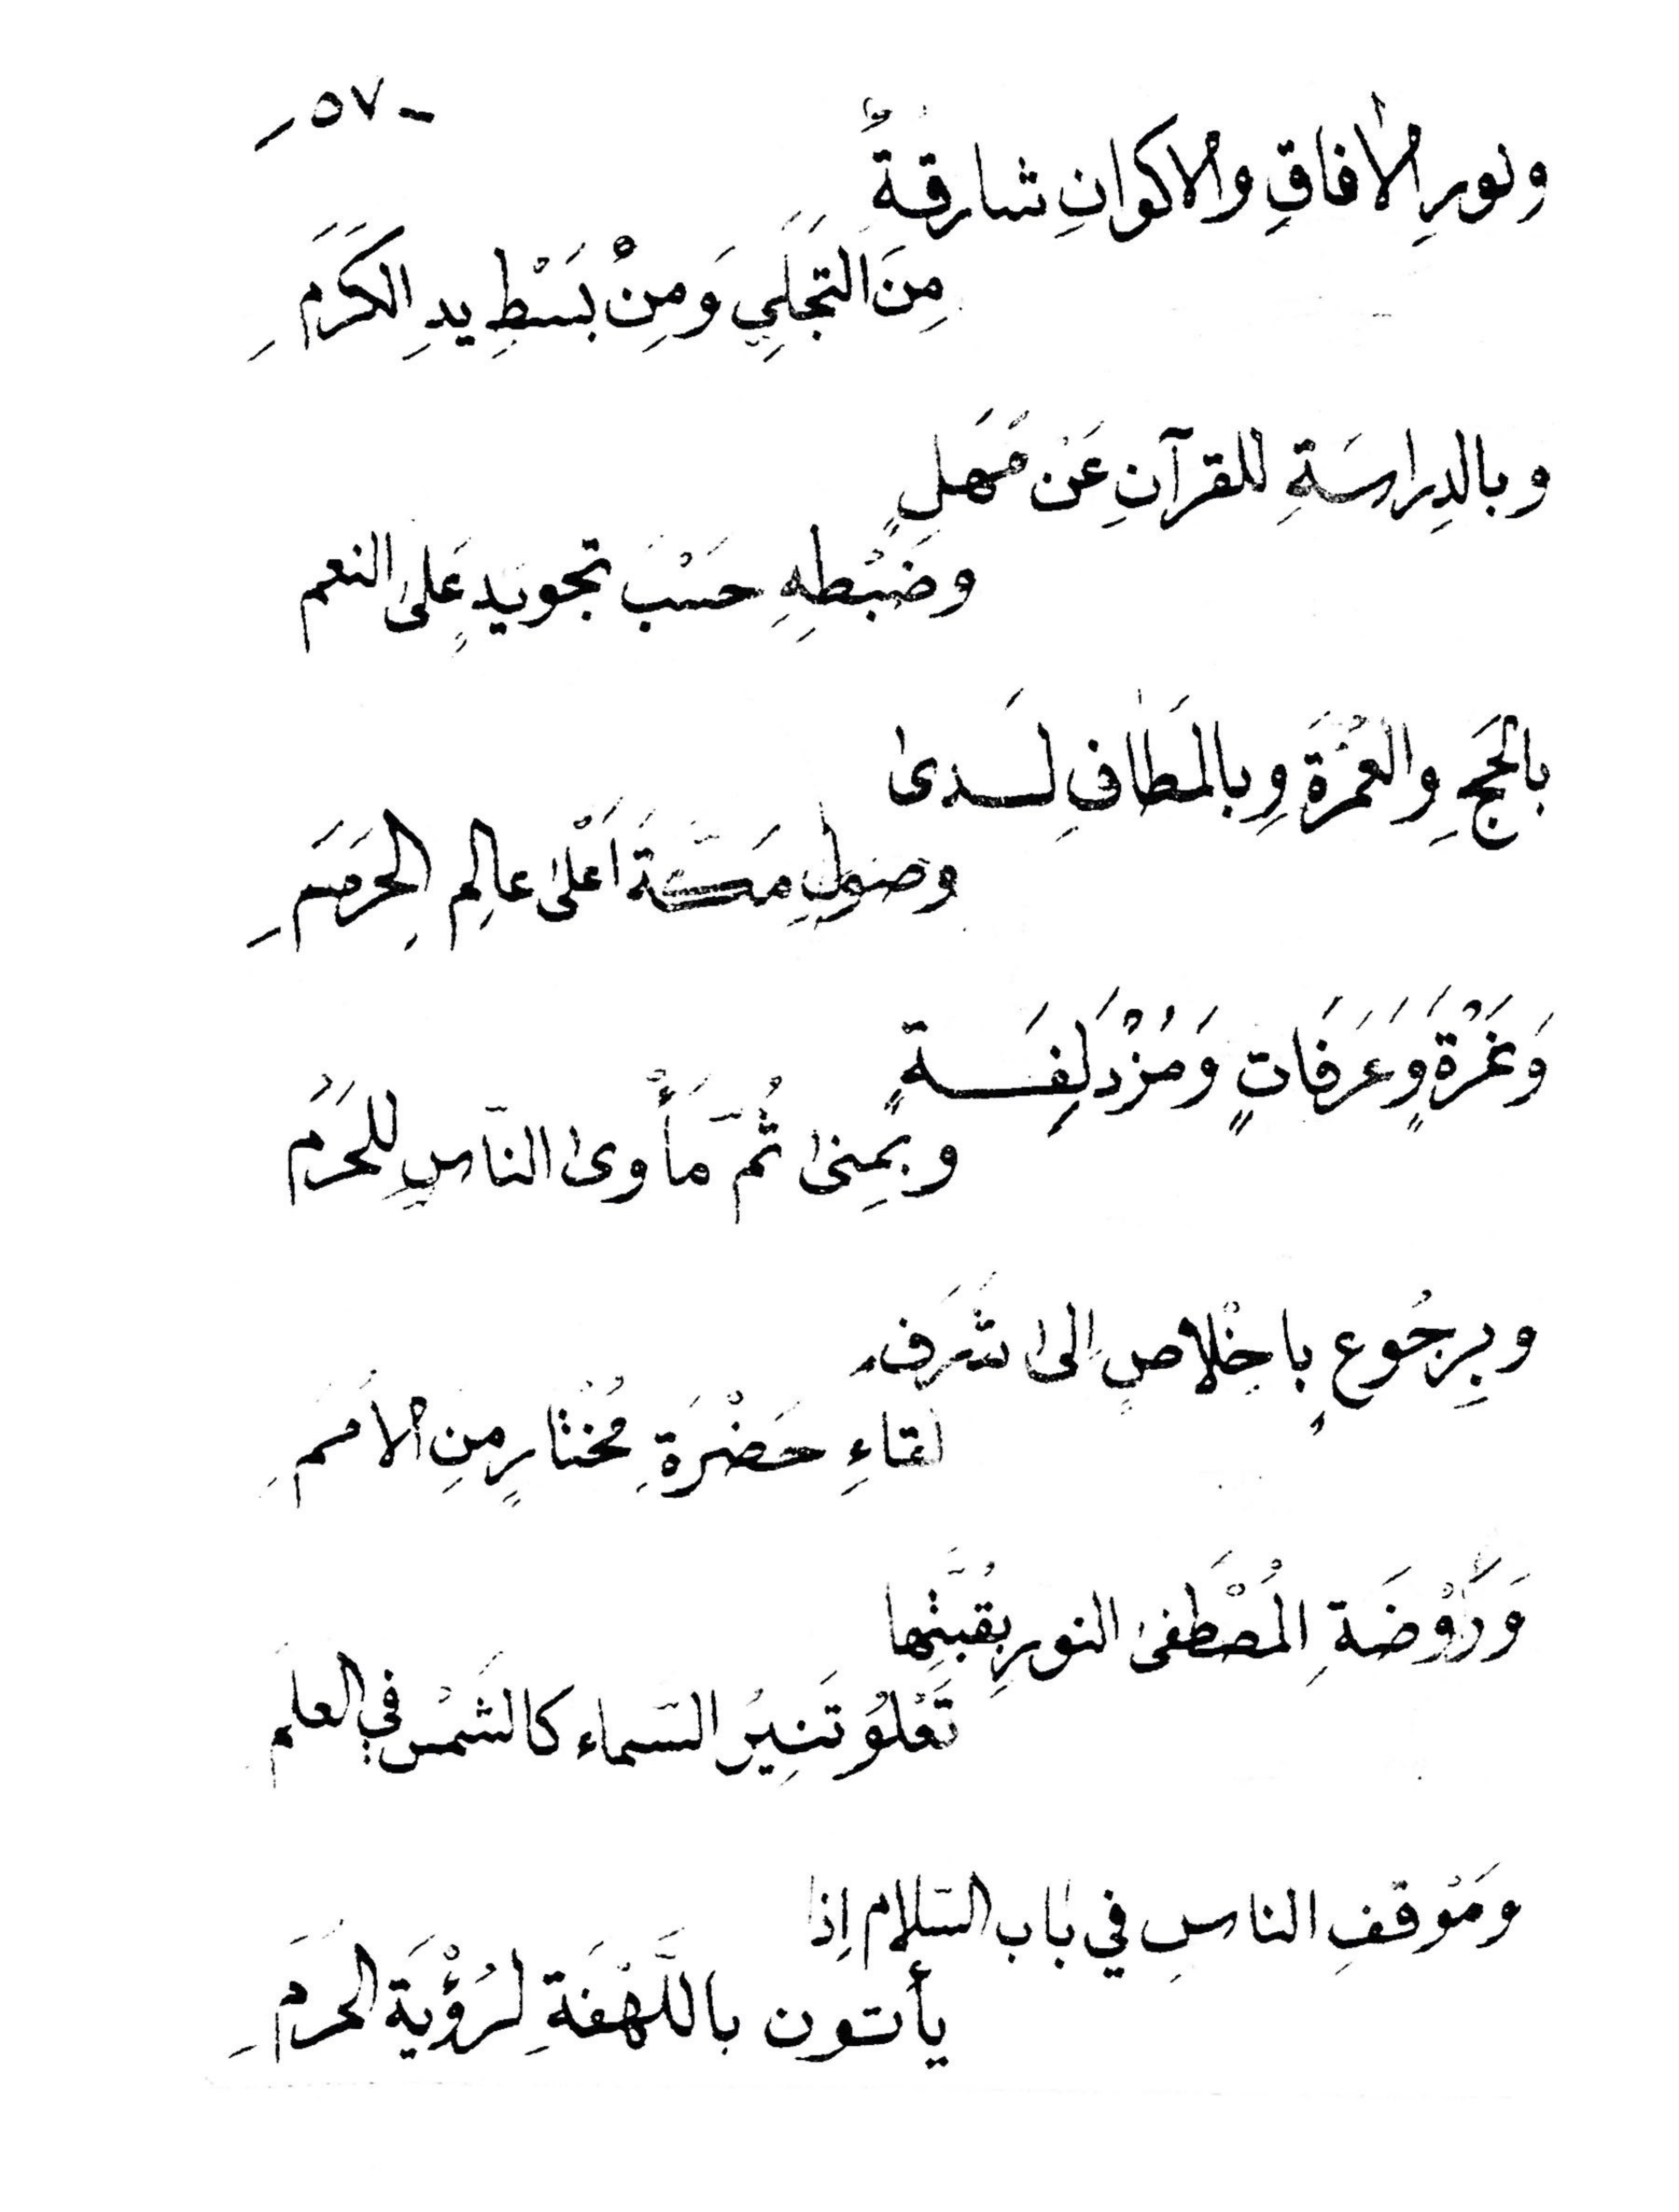 -٥٧-
ونورِ الأفاقِ والاكوانِ شارقةً
مِنَ التجَلي وَمِنْ بَسْطِ يدِ الكَرَمِ
وبالدِراسَةِ للقرآنِ عَن مَهَلٍ
وضَبْطهِ حسْبَ تجويدٍ على النعم
بالحَجِ والعُمْرَةِ وبالمَطافِ لَدى
وصولِ مَكَّةَ اَعْلى عالِم الحِرَمِ
وَنَمْرَةٍ وَعَرَفَاتٍ وَمُزْدَلِفَةٍ
وبمِنى ثُمّ مَأْوى النّاسِ للحَرَم
وبِرجُوعٍ بِاخِلْاصٍ اِلى شَرَف
لقاءِ حَضْرَةِ مُخْتارٍ مِنِ الاُمَمِ
وَرَوْضَةِ المُصْطَفى النور بِقُبَّتِها
تَعْلوُ تَنِيرُ السّماء كالشَمْسِ في العلَم
ومَوْقفِ الناسِ في بابِ السّلام اِذا
يأتون باللَّهْفَةِ لرُؤْيَةِ الحَرَمِ